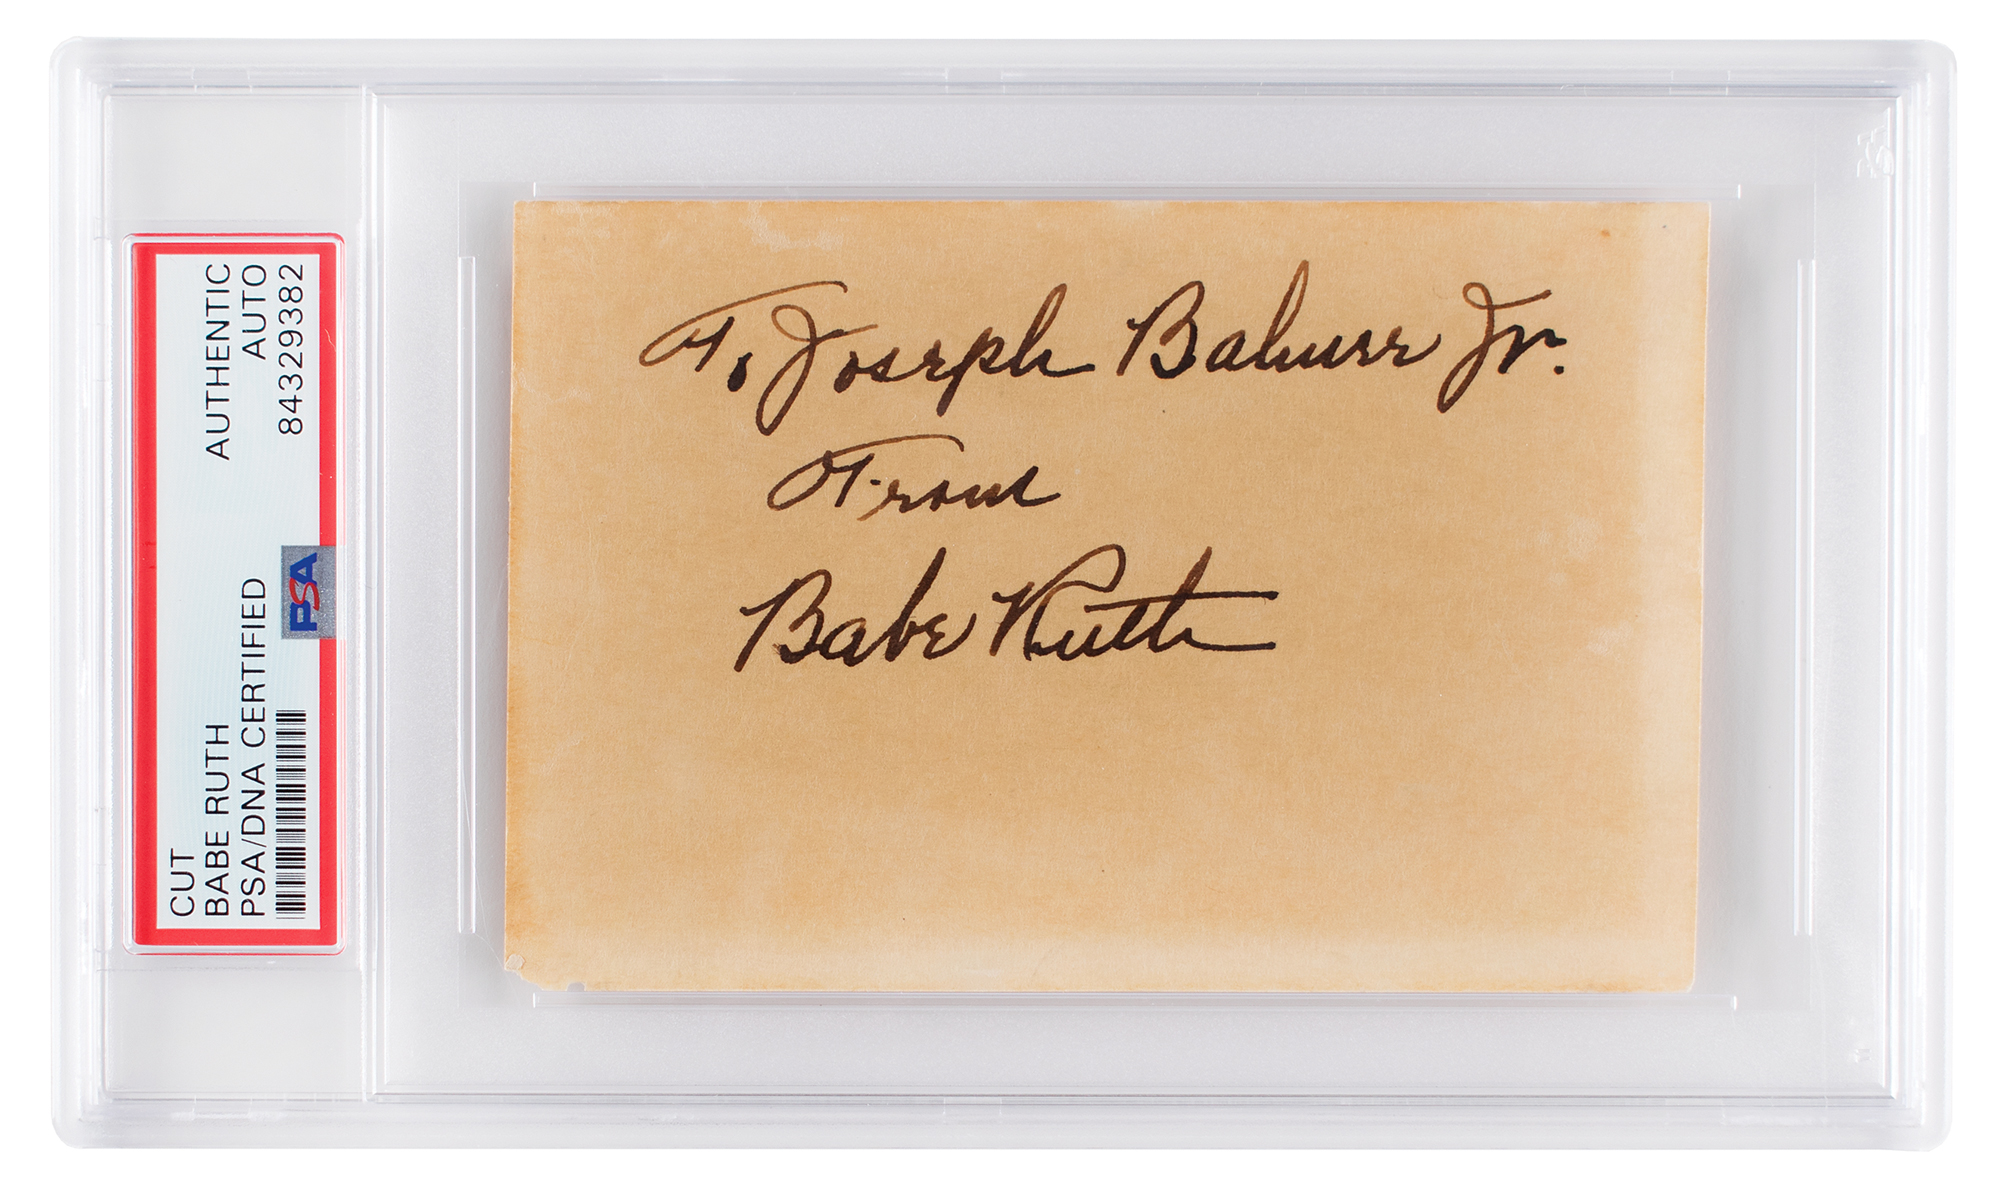 CUT
BABE RUTH
PSA/DNA CERTIFIED
AUTHENTIC
AUTO
84329382
PSA
To Joseph Jr.
From
Babe Ruth